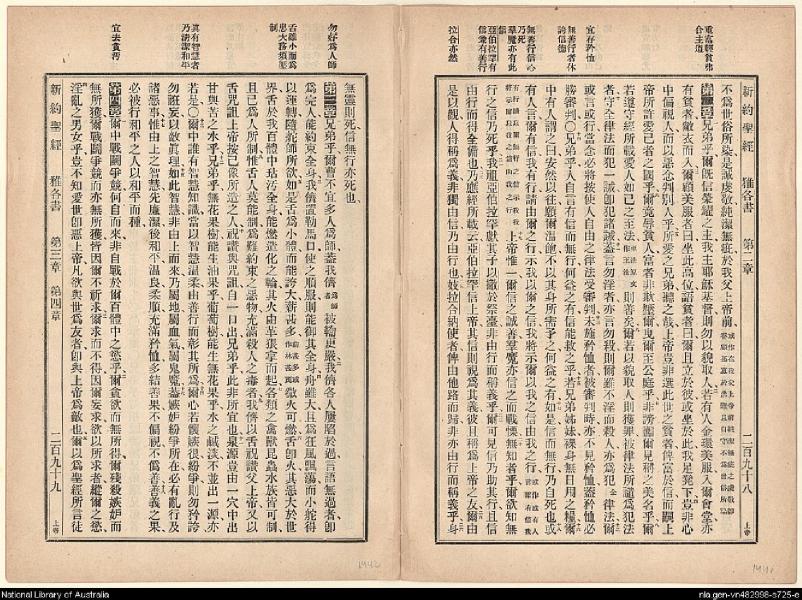 重富輕貧弗合主道
宜存矜恤
無善行者休誇信德
無善行信心乃死
羣魔亦有此信
亞伯拉罕有信兼有善行
拉合亦然
新約聖經 雅各書 第二章 二百九十八 上帝
不爲世俗所染是誠虔敬純潔無玷於我父上帝前
第二章兄弟乎爾旣信榮耀之主我主耶穌基督則勿以貌取人若有人金環美服入爾會堂亦
有貧者敝衣而入爾顧美服者曰坐此高位語貧者曰爾且立於彼或坐於此我足凳下豈非心
中偏視人而以惡念判別人乎所愛之兄弟聽之哉上帝豈非選此世之貧者俾富於信而嗣上
帝所許愛己者之國乎爾竟辱貧人富者非欺壓爾曳爾至公庭乎非謗讟爾見稱之美名乎爾
若遵守經所載愛人如己之至法則善矣爾若以貌取人則獲罪被律法所譴爲犯法
者守全律法而犯一誡卽犯諸誡蓋言勿淫者亦言勿殺則爾雖不淫而殺人亦爲犯律法爾
或言或行當念必將按使人自由之律法受審判未施矜恤者被審判時亦不見矜恤蓋矜恤必
勝審判〇兄弟乎人自言有信而無行何益之有信能救之乎若兄弟姊妹裸身無日用之糧爾
中有人謂之曰安然以往願爾溫飽不以其身所需予之何益之有如是信而無行乃自死也或
有人言爾有信我有行請由爾之行示我以爾之信我將示爾以我之信由我之行
上帝惟一爾信之誠善羣魔亦信之而戰慄無知者乎爾欲知無
行之信乃死乎我祖亞伯拉罕獻其子以撒於祭臺非由行而稱義乎爾可見信乃助其行且信
由行而得全備也乃應經所載云亞伯拉罕信上帝其信則視爲其義彼且稱爲上帝之友爾由
是以觀人得稱爲義非獨由信乃由行也妓拉合納使者俾由他路而歸非亦由行而稱義乎身
勿好爲人師
舌雖小而爲患大務須壓制
眞有智慧者乃清潔和平
宜去貪污
無靈則死信無行亦死也
第三章兄弟乎爾曹不宜多人爲師蓋我儕被擬更嚴我儕各人屢陷於過言語無過者卽
爲完人能約束全身我儕置勒馬口使之順服則能御其全身舟雖大且爲狂風飄蕩而小舵得
以運轉隨舵師所欲如是舌爲小體而能誇大蔚甚多微火可燃舌卽火其惡大於世
界舌於我百體中玷污全身能燃造化之輪其火由革倶拿而起各類之禽獸昆蟲水族皆可制
且已爲人所制惟舌人莫能制爲難約束之惡物充滿殺人之毒者我儕以舌祝讚父上帝又以
舌咒詛上帝按己像所造之人祝讚與咒詛自一口出兄弟乎此非所宜也泉源豈由一穴中出
甘與苦之水乎兄弟乎無花果樹能生油果乎葡萄樹能生無花果乎水之鹹淡不並出一源亦
若是〇爾中誰有智慧知識當以智慧溫柔由善行而彰其所爲爾心若懷嫉很紛爭則勿矜誇
勿誑妄以敵眞理如此智慧非由上而來乃屬地屬血氣屬鬼魔蓋嫉妒紛爭所在必有亂行及
諸惡事惟由上之智慧先廉潔後和平溫良柔順充滿矜恤多結善果不偏視不僞善善義之果
必被行和平之人以和平而種
第四章爾中戰鬬爭競何自而來非自戰於爾百體中之慾乎爾貪欲而無所得爾殘殺嫉妒而
無所獲爾戰鬬爭競而亦無所獲皆因爾不祈求爾求而不得因爾妄求欲以所求者縱爾之慾
淫亂之男女乎豈不知愛世卽惡上帝凡欲與世爲友者卽與上帝爲敵也爾以爲聖經所言徒
新約聖經 雅各書 第三章 第四章 二百九十九 上帝
National Library of Australia
nla.gen-vn482998-s725-e